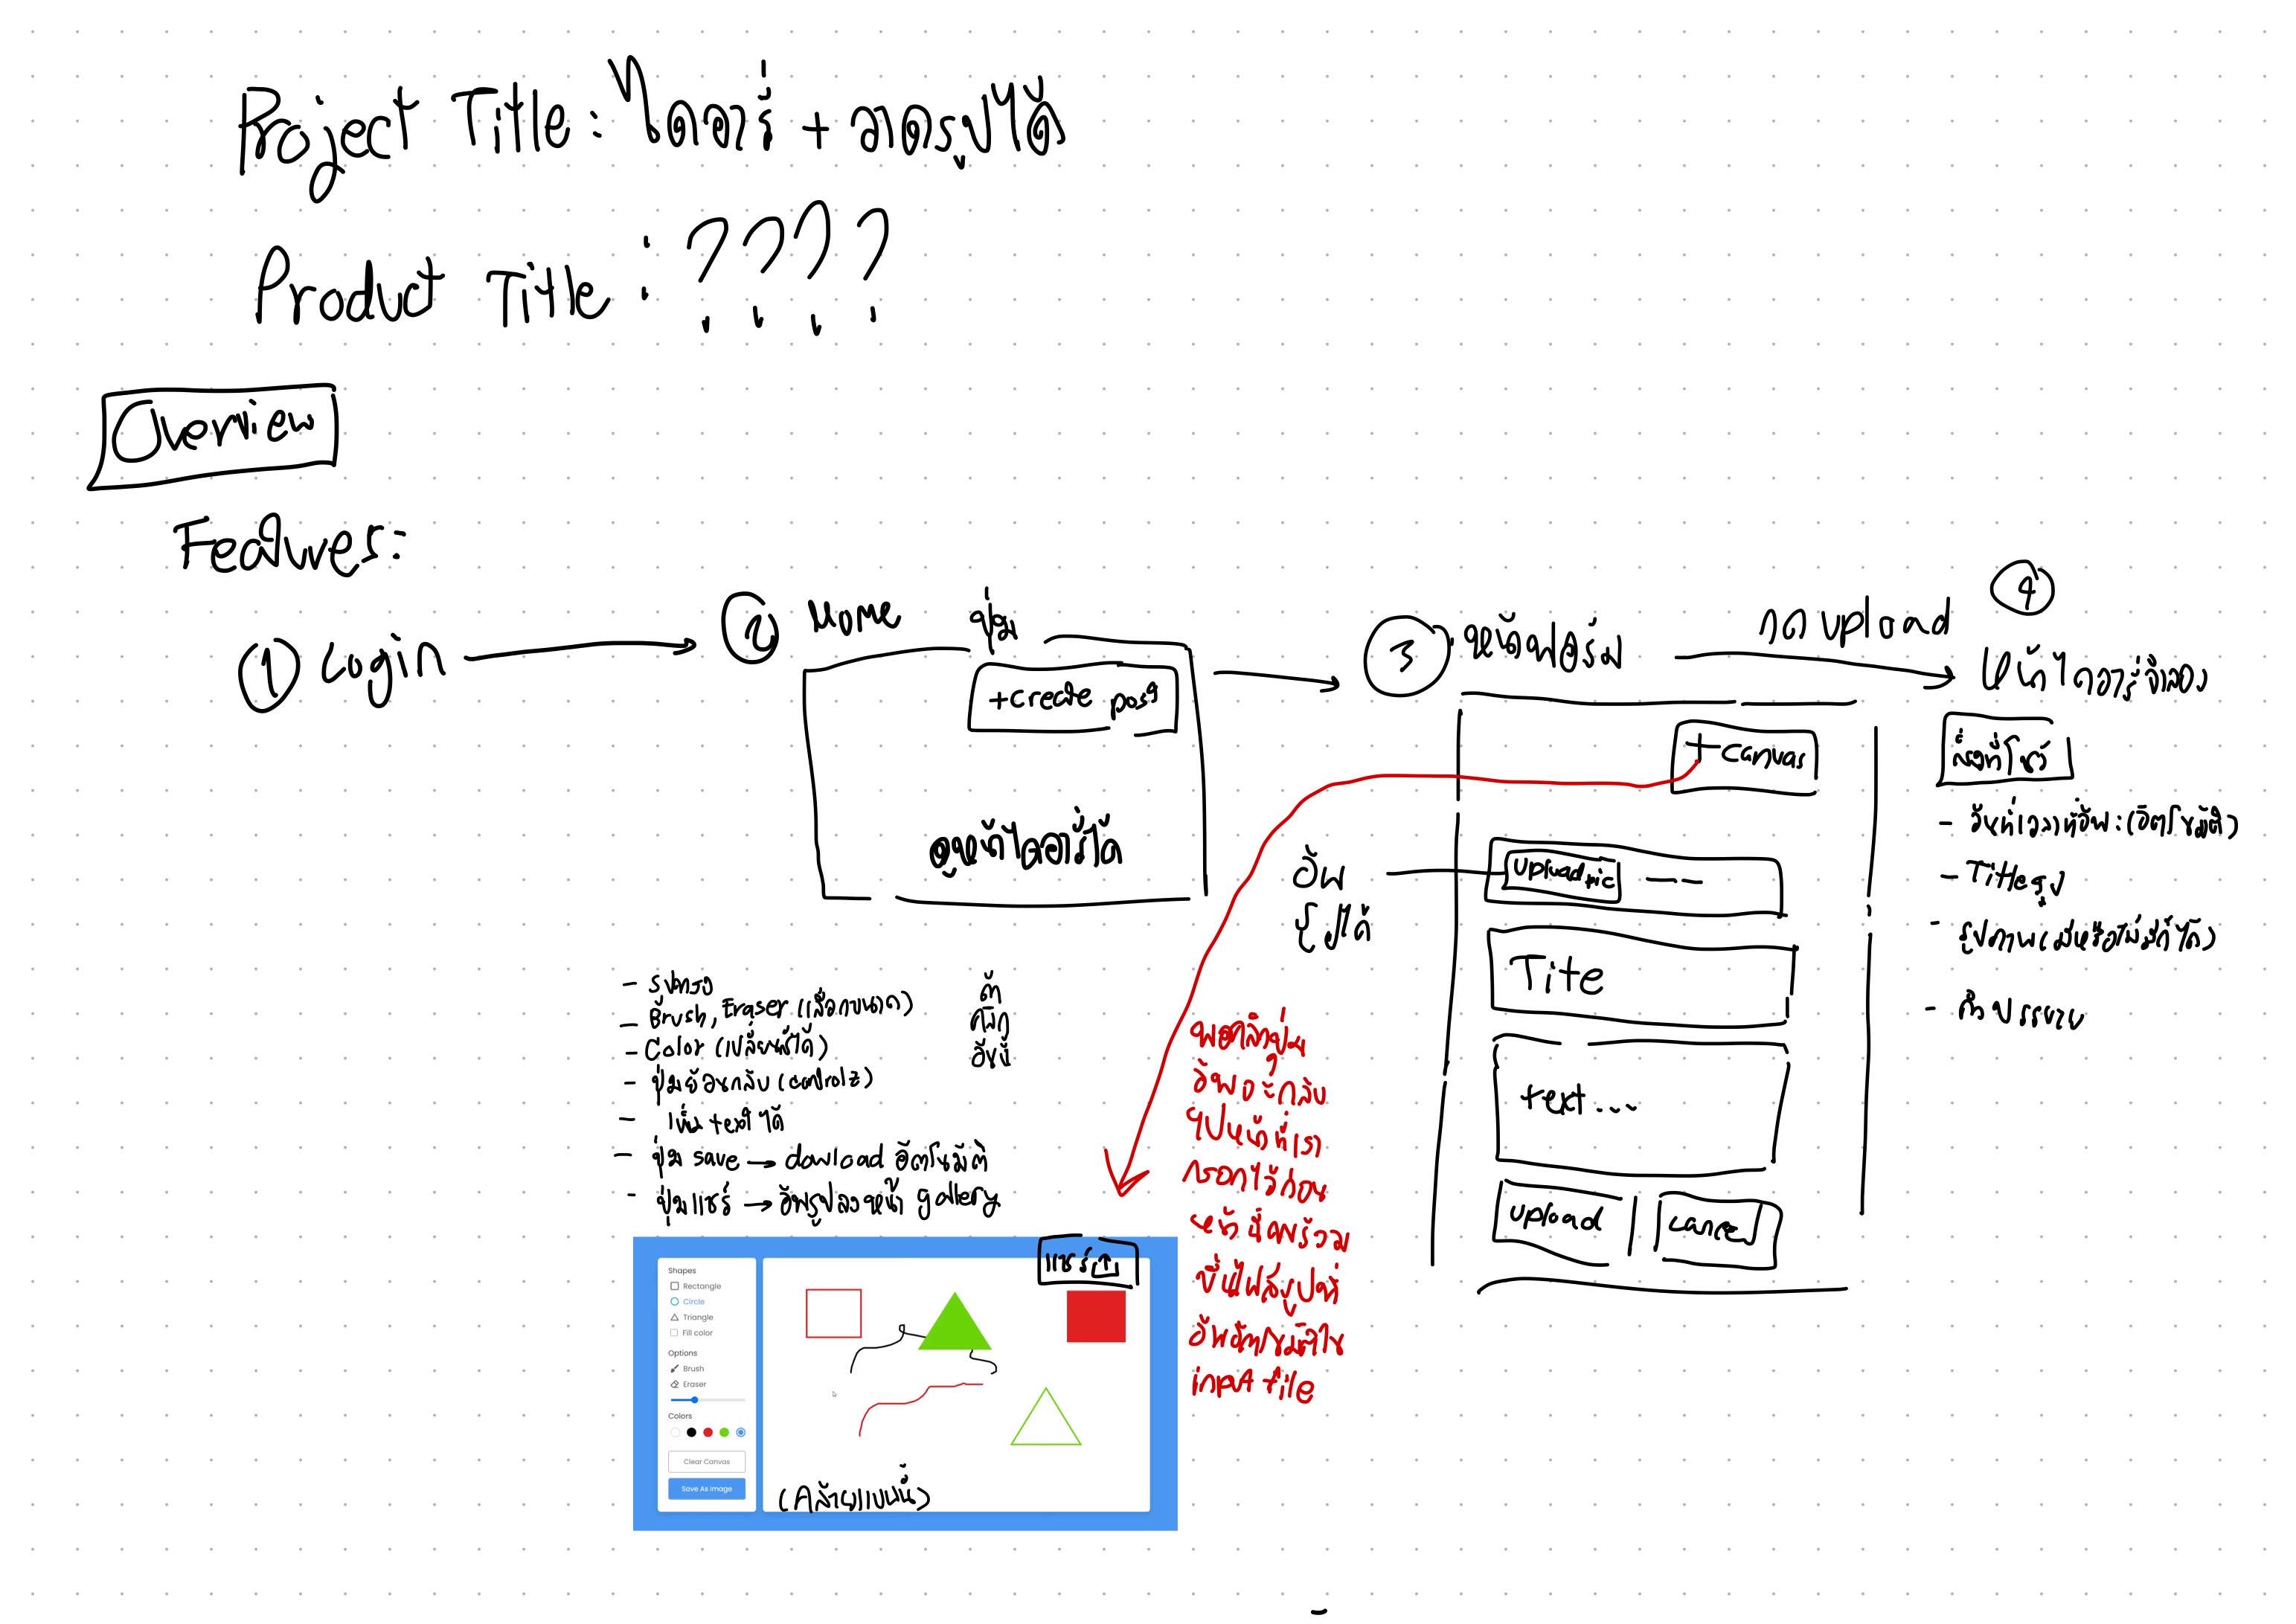 Project Title : ไดอารี่ + วาดรูปได้
Product Title : ????
Overview
Features:
① Login
② Home
ปุ่ม
+create post
ดูหน้าไดอารี่ได้
③ หน้าฟอร์ม
กด upload
④
หน้าไดอารี่จำลอง
+canvas
อัพ
รูปได้
upload pic
Tite
text....
upload
cancel
สิ่งที่โชว์
- วันที่เวลาที่อัพ:(อัตโนมัติ)
- Title รูป
- รูปภาพ(มีหรือไม่มีก็ได้)
- คำบรรยาย
- รูปทรง
- Brush, Eraser (เลือกขนาด)
- Color (เปลี่ยนสีได้)
- ปุ่มย้อนกลับ (controlz)
- เพิ่ม text ได้
- ปุ่ม save → dowload อัตโนมัติ
- ปุ่มแชร์ → อัพรูปลงหน้า gallery
ถ้า
คลิก
อันนี้
พอคลิกปุ่ม
อัพจะกลับ
ไปหน้าที่เรา
กรอกไว้ก่อน
หน้านี้พร้อม
ขึ้นไฟล์รูปที่
อัพอัตโนมัติใน
input file
แชร์
Shapes
Rectangle
Circle
Triangle
Fill color
Options
Brush
Eraser
Colors
Clear Canvas
Save As Image
(คล้ายแบบนี้)